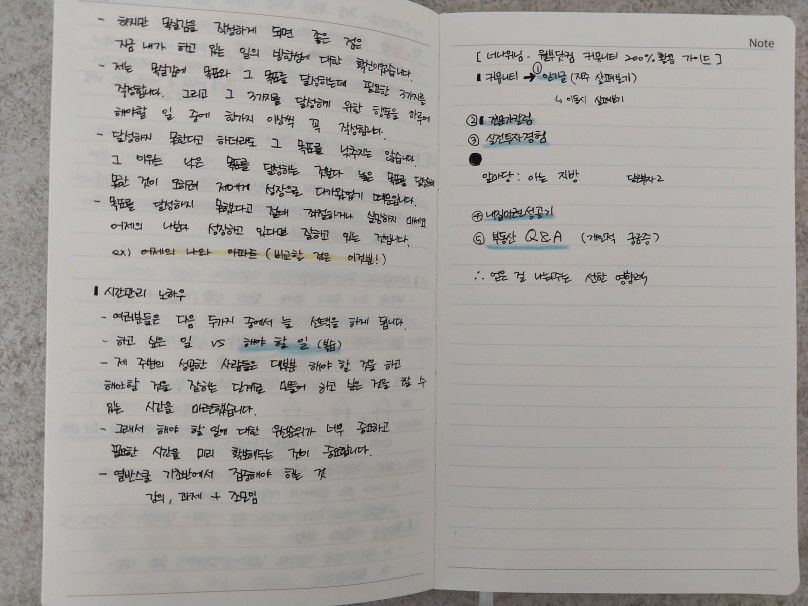 - 하지만 목실감을 작성하게 되면 좋은 점은
지금 내가 하고 있는 일의 방향성에 대한 확신이었습니다.
- 저는 목실감에 목표와 그 목표를 달성하는데 필요한 3가지를
작성합니다. 그리고 그 3가지를 달성하기 위한 행동을 하루에
해야할 일 중에 한가지 이상씩 꼭 작성합니다.
- 달성하지 못한다고 하더라도 그 목표를 낮추지는 않습니다.
그 이유는 낮은 목표를 달성하는 것보다 높은 목표를 달성
못한 것이 오히려 저에게 성장으로 다가왔었기 때문입니다.
- 목표를 달성하지 못했다고 절대 좌절하거나 실망하지 마세요
어제의 나보다 성장하고 있다면 잘하고 있는 것입니다.
ex) 어제의 나와 아파트 (비교할 것은 이것뿐!)
▌시간관리 노하우
- 여러분들은 다음 두가지 중에서 늘 선택을 하게 됩니다.
- 하고 싶은 일 vs 해야 할 일 (복습)
- 제 주변의 성공한 사람들은 대부분 해야 할 것을 하고
해야할 것을 잘하는 단계로 만들어 하고 싶은 것을 할 수
있는 시간을 마련했습니다.
- 그래서 해야 할 일에 대한 우선순위가 너무 중요하고
필요한 시간을 미리 확보해두는 것이 중요합니다.
- 열반스쿨 기초반에서 집중해야 하는 것
강의, 과제 + 조모임
Note
[ 너나위님 - 월부닷컴 커뮤니티 200% 활용 가이드 ]
▌커뮤니티 → ① 인기글 (자주 살펴보기)
↳ 이동시 살펴보기
② 전문가칼럼
③ 실전투자경험
●
앞마당 : 아는 지방
④ 내집마련성공기
⑤ 부동산 Q&A (개인적 궁금증)
∴ 얻은 걸 나눠주는 선한 영향력